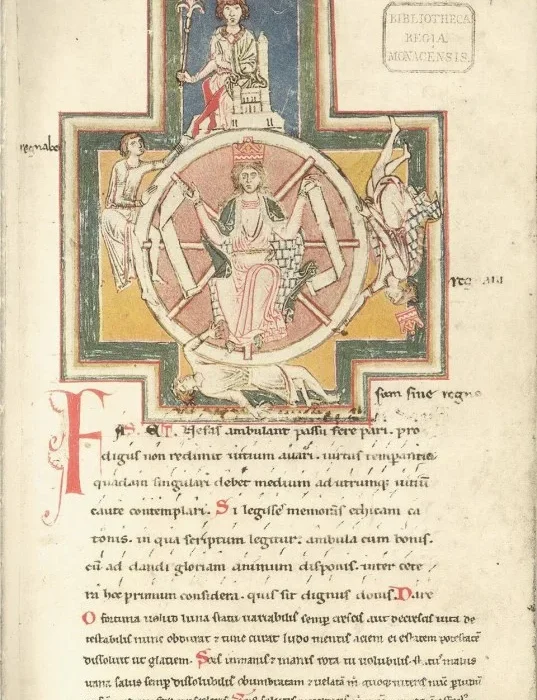 BIBLIOTHECA
REGIA
MONACENSIS.
regnabo
regnaui
sum sine regno
Fas et Nefas ambulant passu fere pari. pro
digus non redimit uitium auari. uirtus temperantia
quadam singulari debet medium ad utrumque uitiū
caute contemplari. Si legisse memoras ethicam ca
tonis. in qua scriptum legitur. ambula cum bonis.
cū ad dandi gloriam animum disponis. inter cete
ra hoc primum considera. quis sit dignus donis. Dare
O fortuna uelud luna statu uariabilis semp crescis aut decrescis uita de
testabilis nunc obdurat 7 tunc curat ludo mentis aciem egestatem potestatē
dissoluit ut glaciem. Sors inmanis 7 inanis rota tu uolubilis status malus
uana salus semp dissolubilis obumbratam 7 uelatam